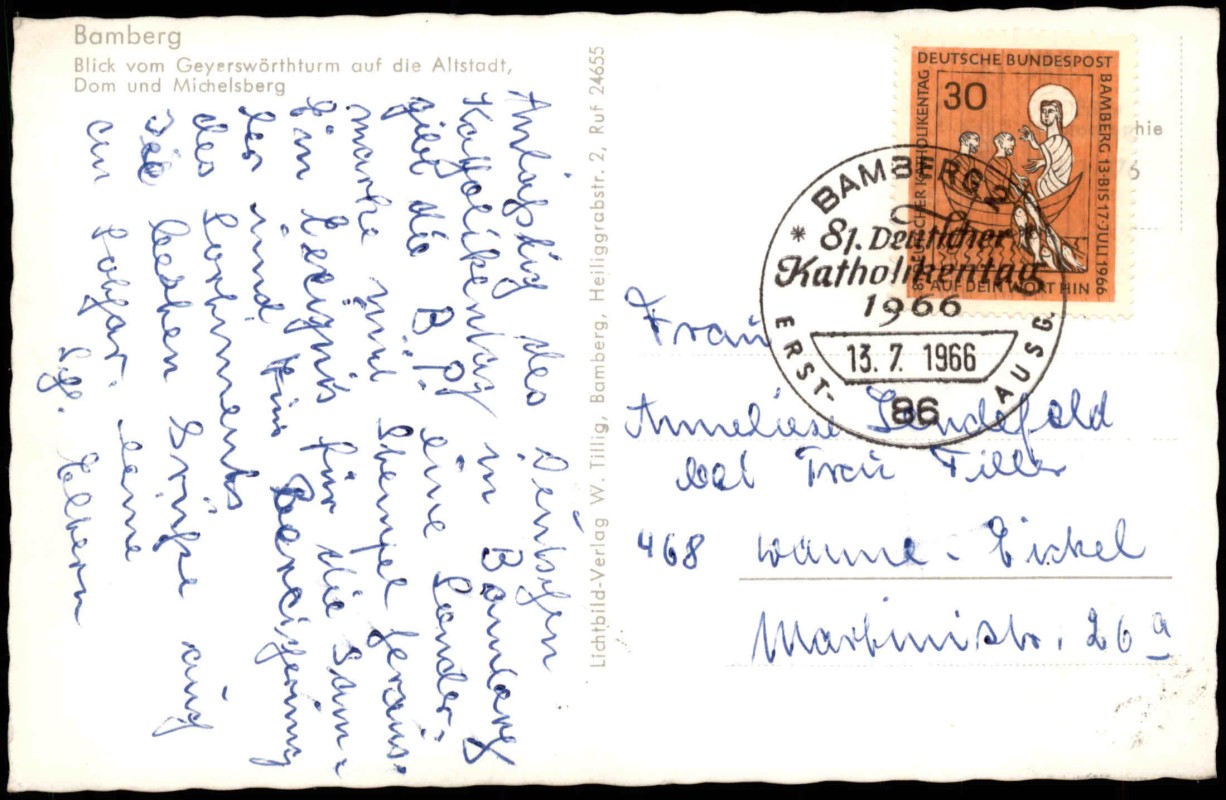 Bamberg
Blick vom Geyerswörthturm auf die Altstadt,
Dom und Michelsberg
Anläßlig des Deutschen
Katholikentag in Bamberg
gibt die B.P. eine Sonder-
marke und Stempel heraus.
Ein Ereignis für die Sam-
ler und zur Bereicherung
des Sortiments
Die besten Grüße auch
an Lothar. Deine
Lb. Eltern
Lichtbild-Verlag W. Tillig, Bamberg, Heiliggrabstr. 2, Ruf 24655
DEUTSCHE BUNDESPOST
BAMBERG 13·BIS 17·JULI 1966
AUF DEIN WORT HIN
81 DEUTSCHER KATHOLIKENTAG
30
BAMBERG 2
81. Deutscher
Katholikentag
1966
13.7.1966
86
ERST- AUSG.
phie
Frau
Anneliese
bei Frau Tiller
468 Wanne-Eickel
Martinistr. 26a